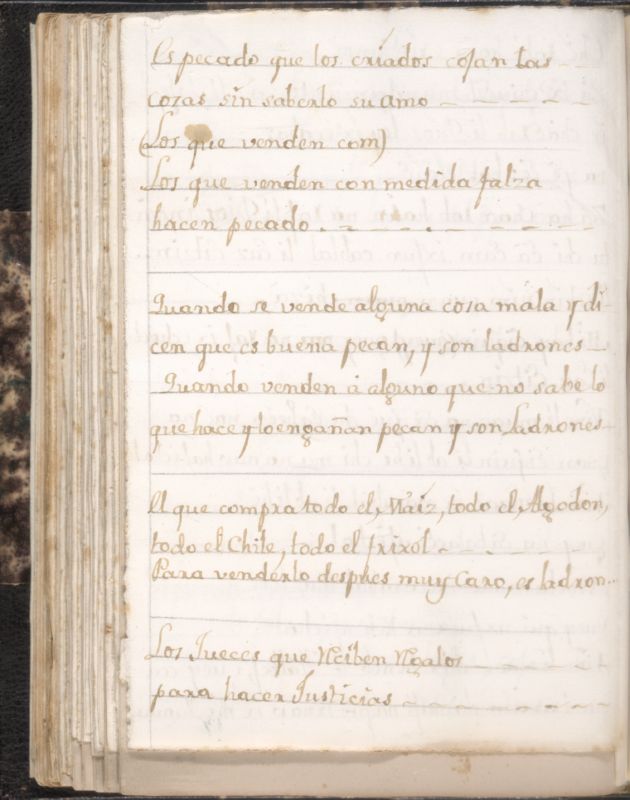 Es pecado que los criados cojan las
cozas sin saberlo su amo
(Los que venden com)
Los que venden con medida falza
hacen pecado.
Quando se vende alguna coza mala y di-
cen que es buena pecan, y son ladrones
Quando venden á alguno que no sabe lo
que hace y lo engañan pecan y son Ladrones
El que compra todo el, Maiz, todo el, Algodon,
todo el Chile, todo el frixol
Para venderlo despues muy caro, es ladron..
Los Jueces que Reciben Regalos
para hacer Justicias